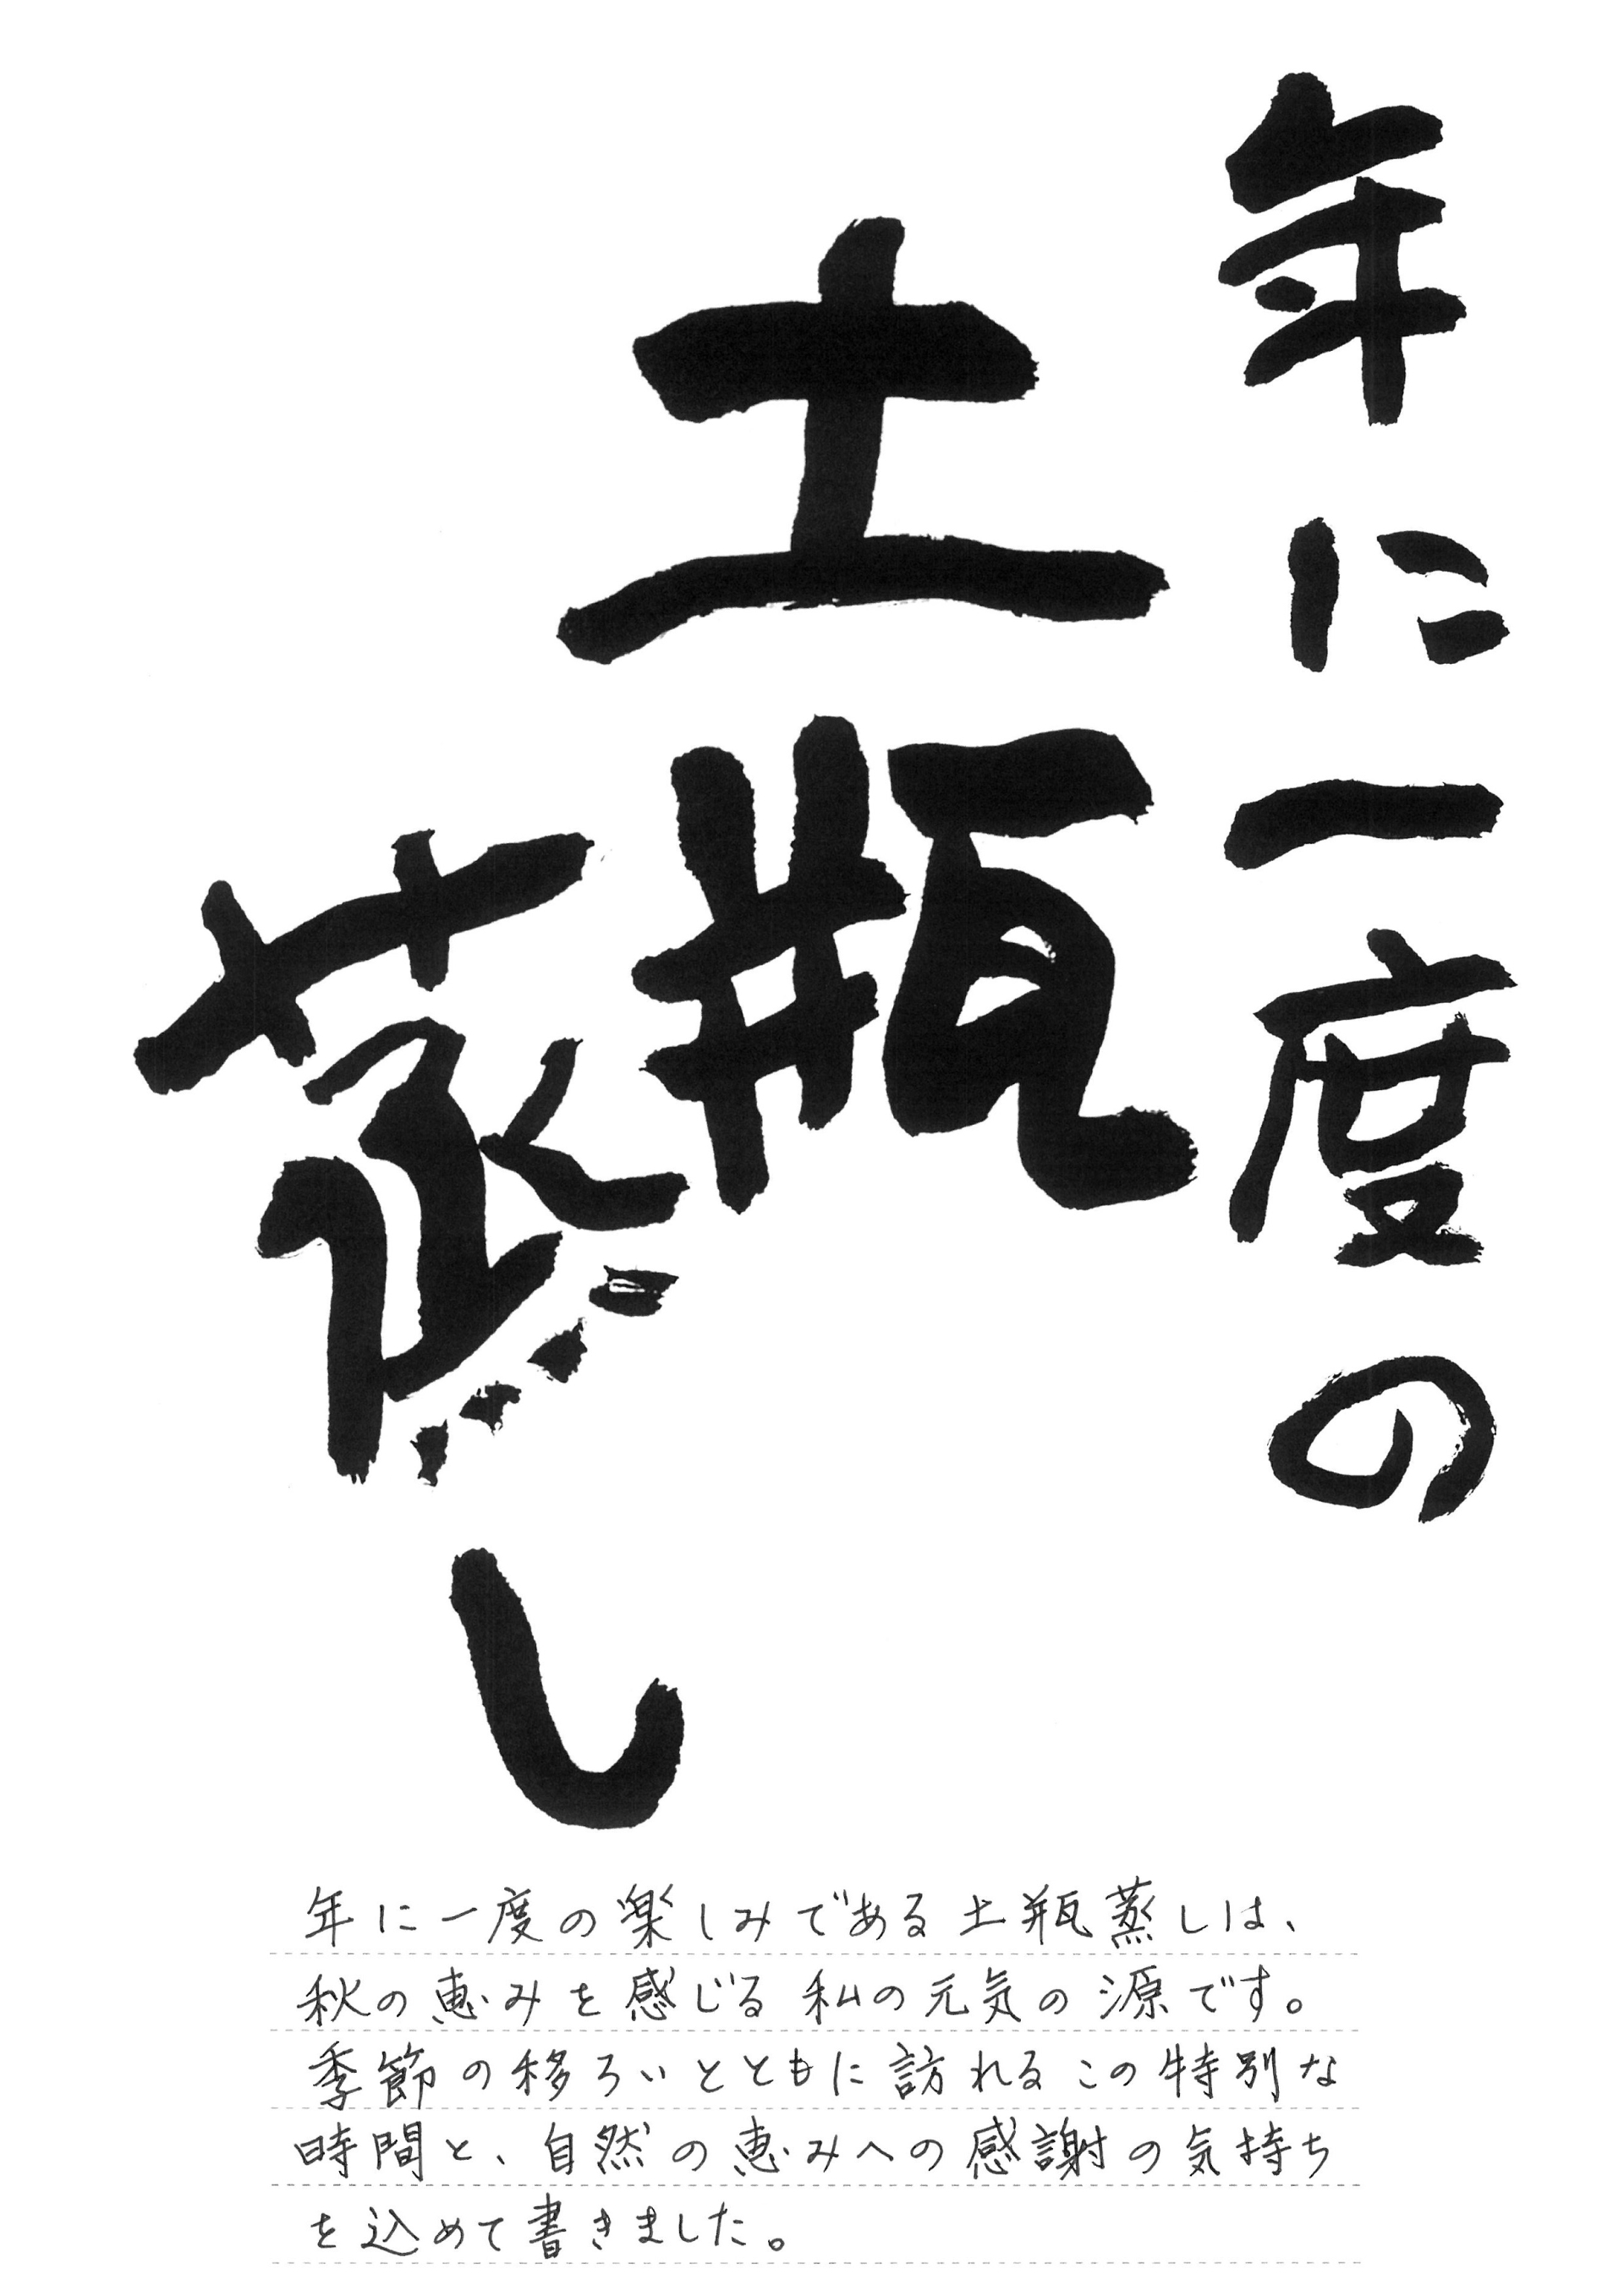 年に一度の
土瓶
蒸し
年に一度の楽しみである土瓶蒸しは、
秋の恵みを感じる私の元気の源です。
季節の移ろいとともに訪れるこの特別な
時間と、自然の恵みへの感謝の気持ち
を込めて書きました。